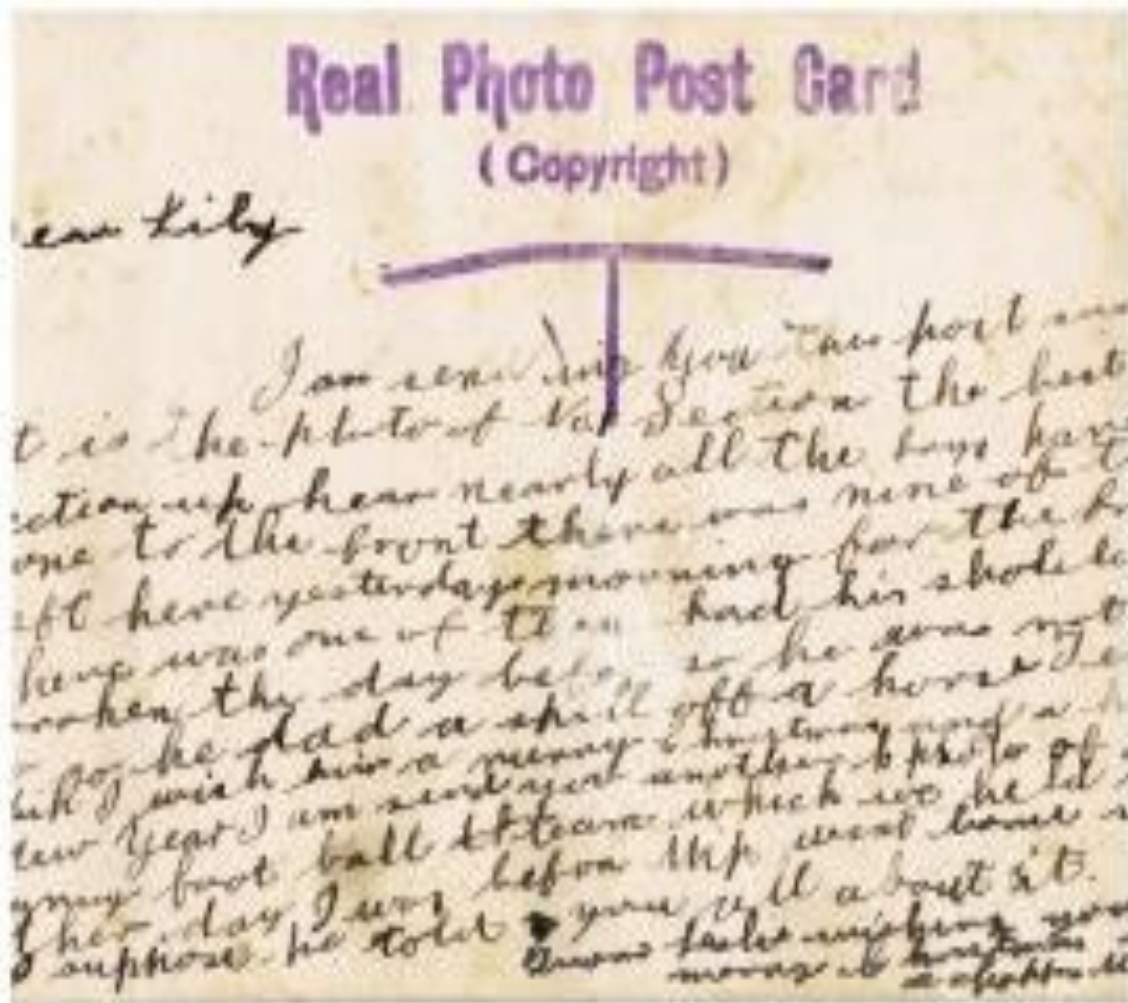 Real Photo Post Card
(Copyright)
ear Lily
I am sending you this post
t is the photo of No Section the best
ction up hear nearly all the boys hav
one to the front there was nine of t
eft here yesterday morning for the
here was one of them had his
roken the day before so he was not
go he had a spill off a horse
I wish him a merry and a
New Year I am send you another photo of
foot ball team which we held
ther day I was before went home
suppose he told you all about it.
wishing you